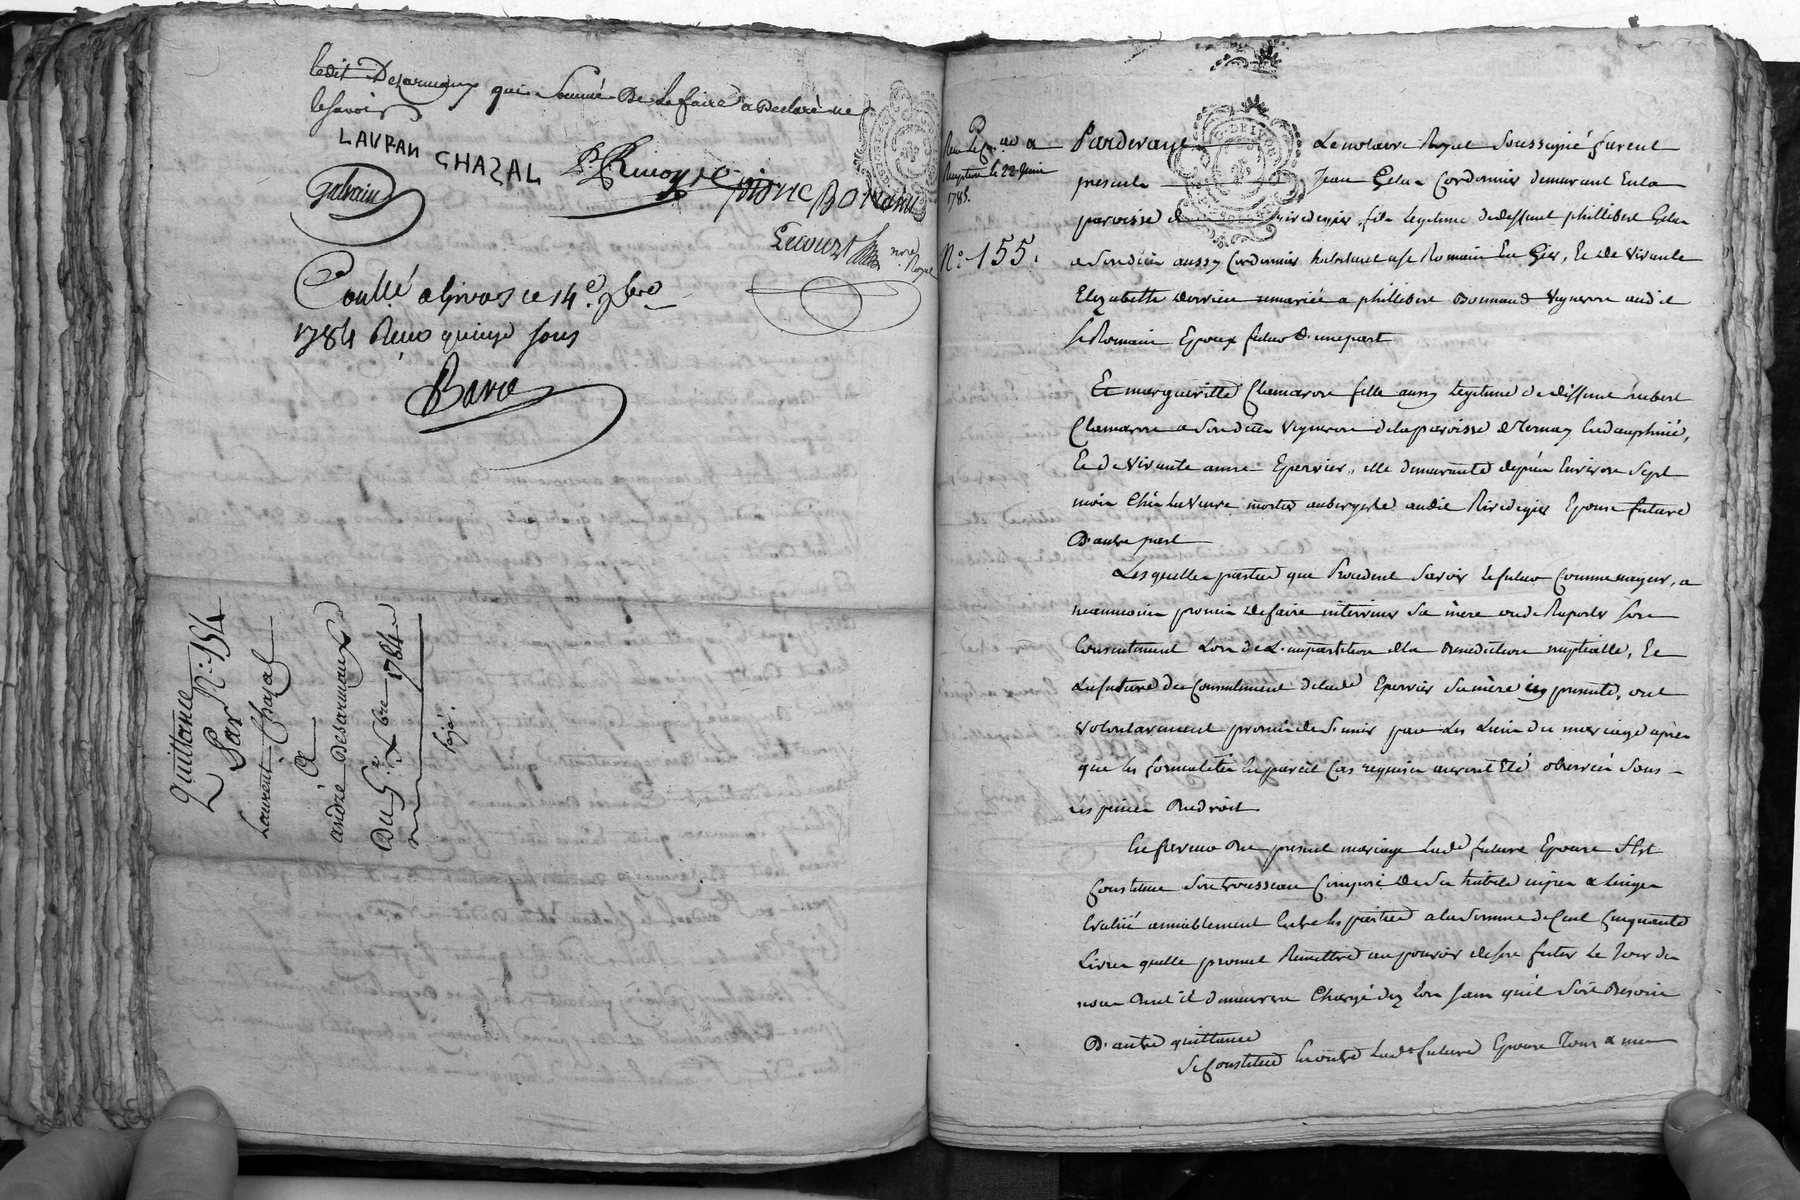 ledit Desarmaux qui Sommé De Le faire a Declaré ne
le Savoir
LAVRAN CHAZAL
Galvain
pierre BONNAND
Lecourt
nore Royal
Controllé a Givors ce 14e. xbre
1784 Recu quinze sous
Quittance
Par N°. 154
Laurent Chazal
A
andré Desarmaux
Du 5e. Xbre 1784
N°. 155.
le 22 Juin
1785.
Pardevant Le notaire Royal Soussigné furent
presents Jean Gelu Cordonnier demeurant En la
paroisse de Rivedegier, fils legitime de deffunt phillibert Gelu
a Son décès aussy Cordonnier habitant a St Romain En Gier, Et de vivante
Elizabette derrieu remariée a phillibert Bonnand Vigneron audit
St Romain Epoux futur d'une part
Et margueritte Clamaron fille aussy legitime de deffunt
Clamaron a Son décès vigneron de la paroisse de Ternay En dauphiné,
Et de vivante anne Epervier, elle demeurante depuis Environ Sept
mois Chés la veuve aubergiste audit Rivedegier Epouse future
D'autre part
Lesquelles parties que Procedent Savoir le futur Comme majeur, a
neanmoins promis de faire intervenir Sa mère ou de Raporter Son
Consentement Lors de L'impartition de la Benediction nuptialle, Et
La future du Consentement de lade Epervier Sa mère icy presente, ont
volontairement promis de S'unir par Les Liens du mariage après
que les formalités En pareil Cas requises auront Eté observées Sous
les peines de droit
En faveur du present mariage Lade future Epouse S'est
Constitué Son trousseau Composé de Ses habits nipes & Linges
Evalué amiablement Entre les parties a la Somme de Cent Cinquante
Livres quelle promet Remettre au pouvoir de Son futur Le Jour des
noces dont il demeurera Chargé dez Lors Sans qu'il Soit Besoin
D'autre quittance
Se Constitue En outre Lade future Epouse Tous & un